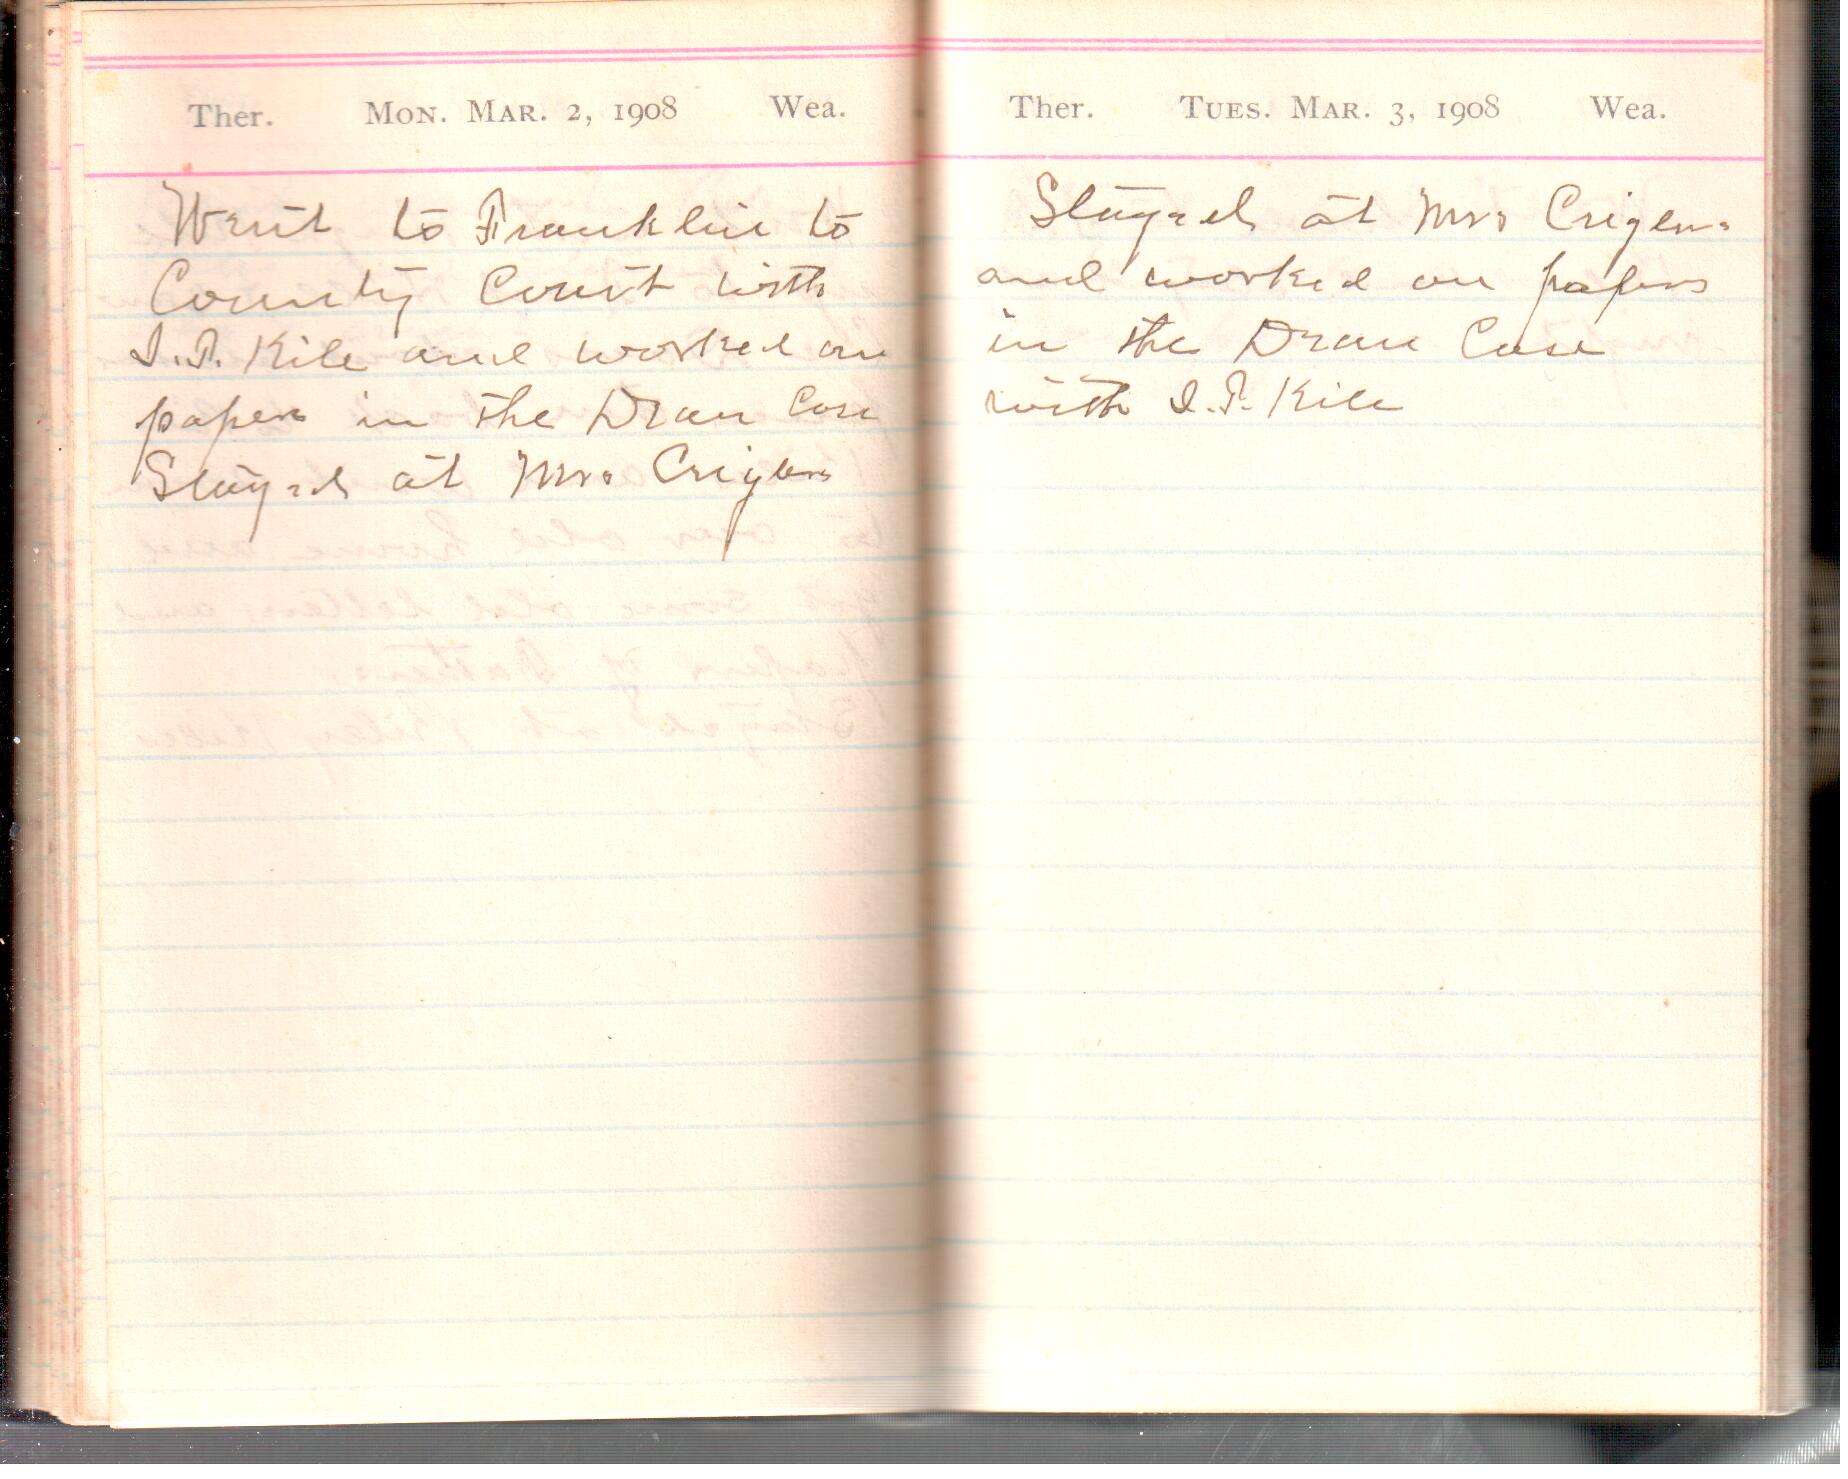 Ther. Mon. Mar. 2, 1908 Wea.
Went to Franklin to
County Court with
I.T. Kile and worked on
papers in the Dran Case
Stayed at Mrs Criglers
Ther. Tues. Mar. 3, 1908 Wea.
Stayed at Mrs Criglers
and worked on papers
in the Dran Case
with I.T. Kile